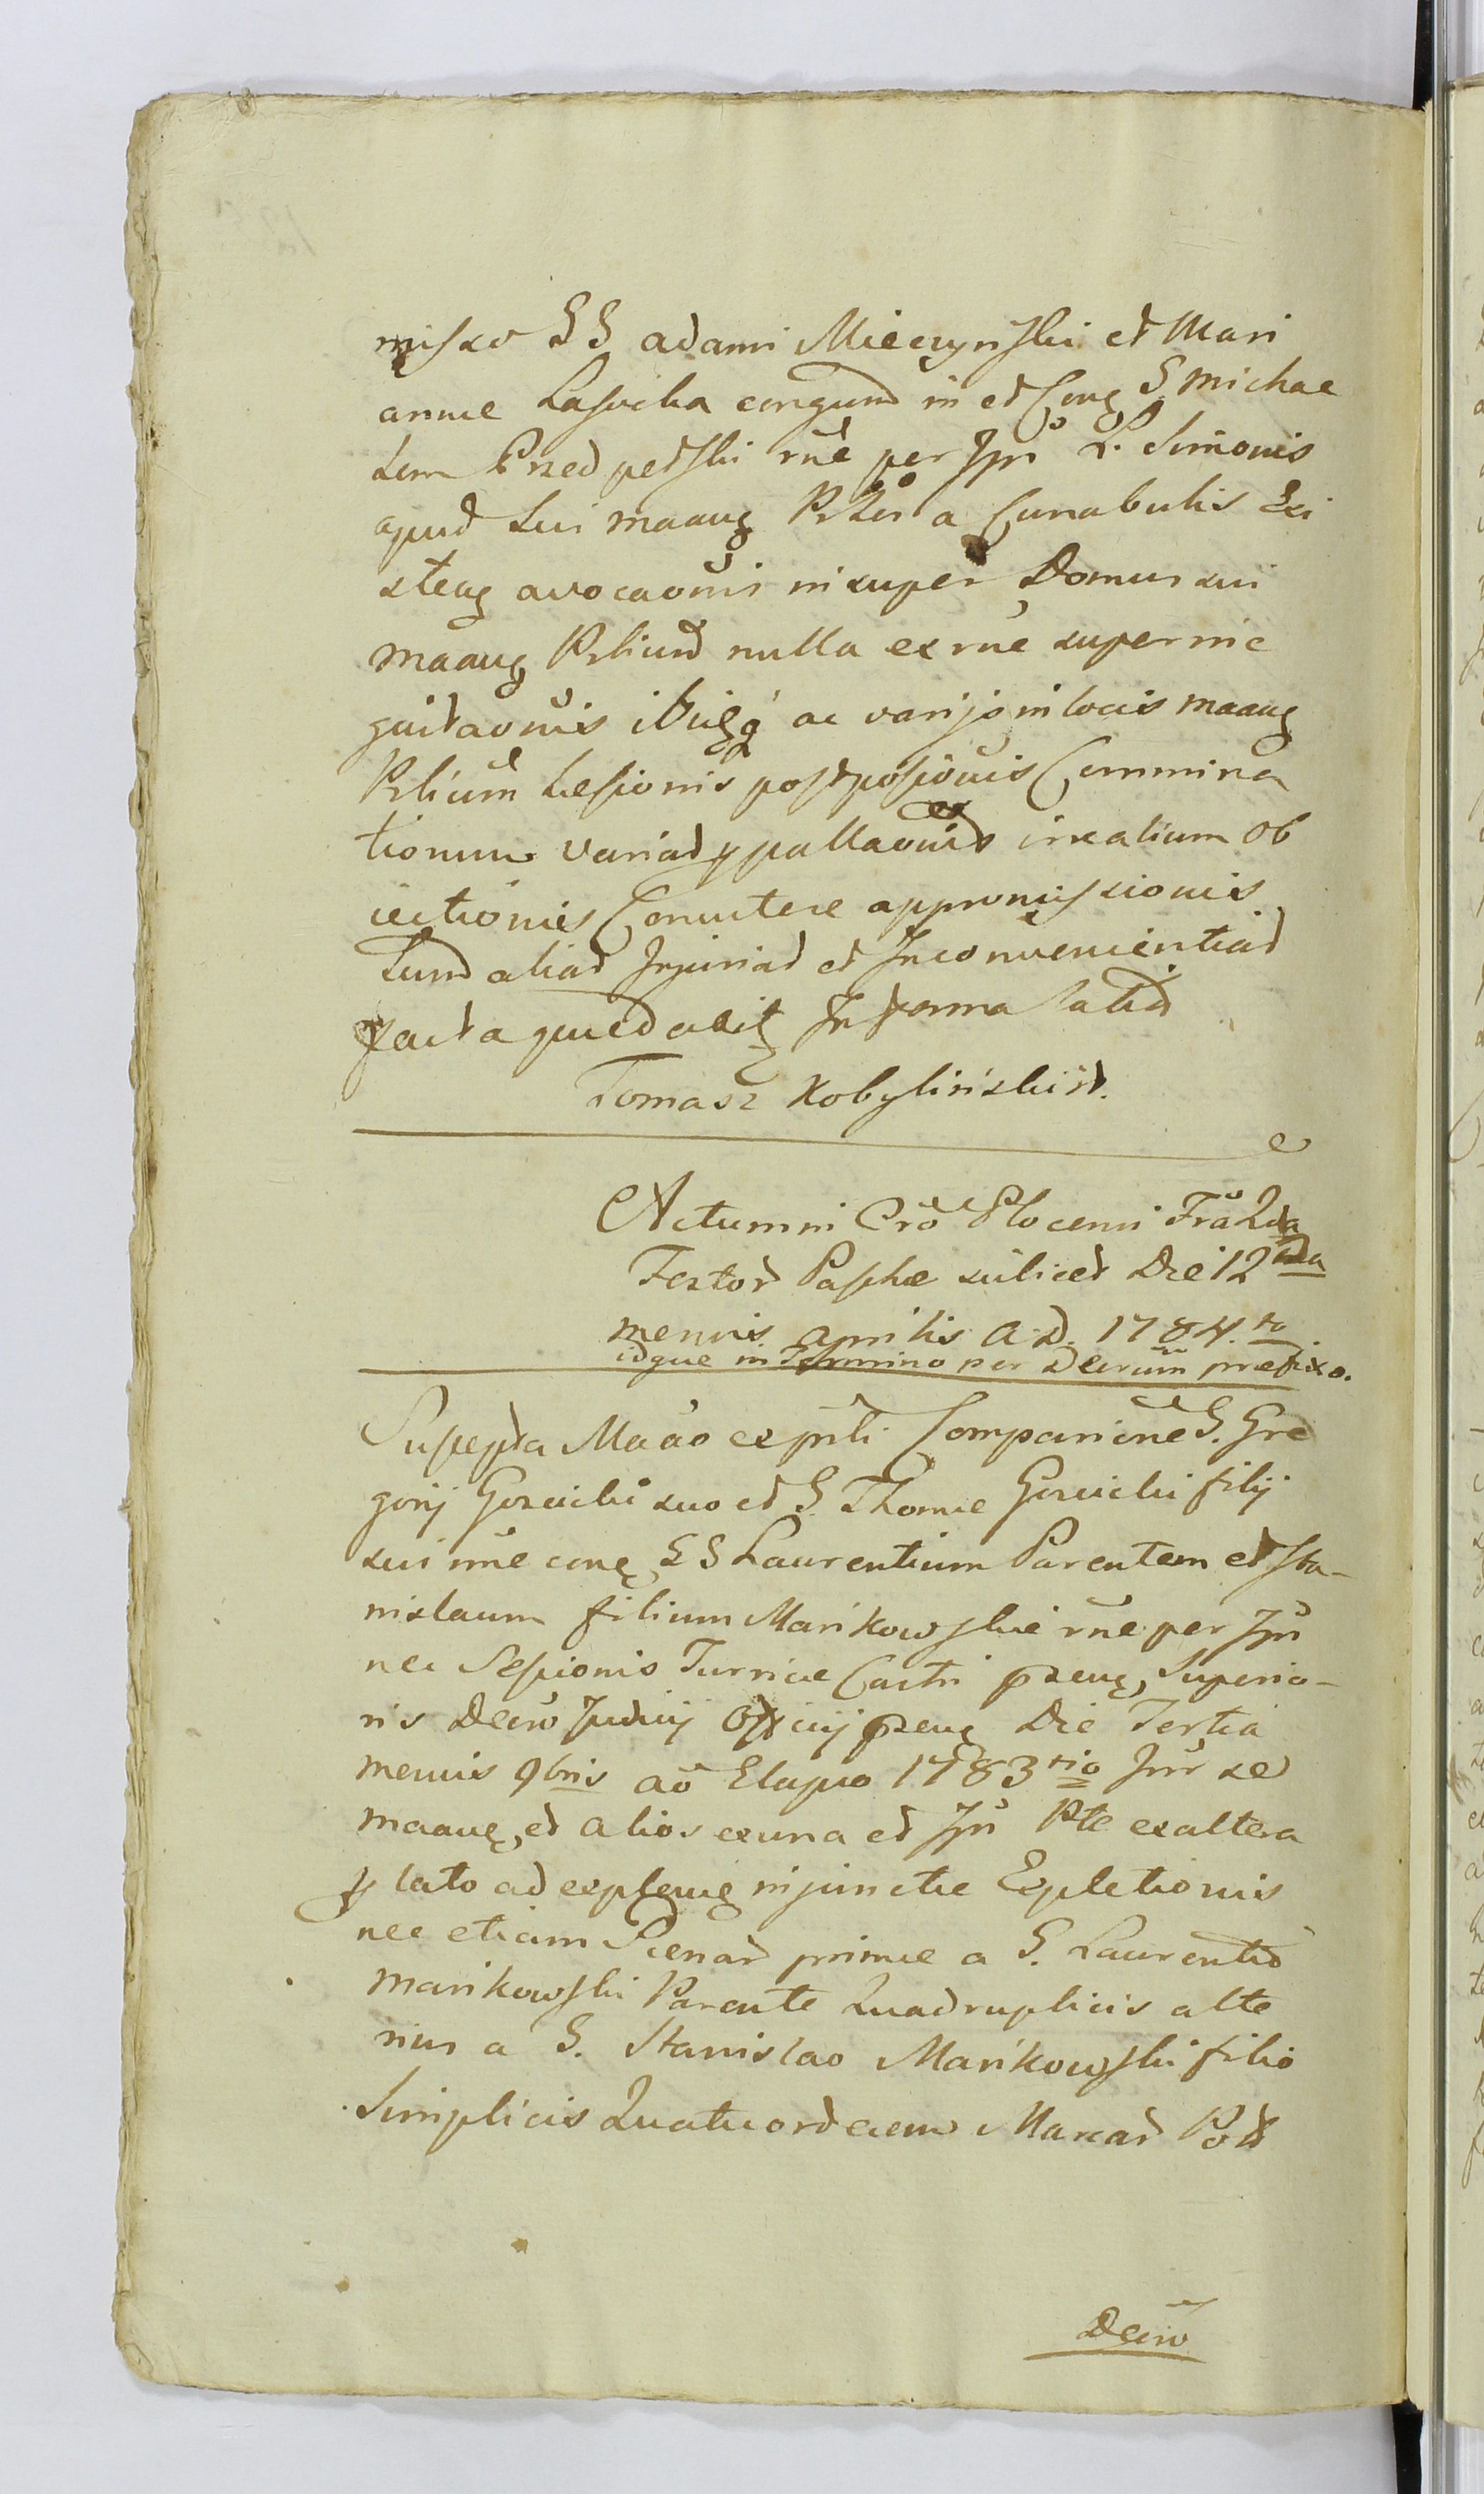 misso GG adami Mieczynski et Mari
anne Lasocka congund in et Cong G Michae
lem Przedpełski rne per Ipn L. Simonis
apud sui maaug Prlor a Cunabulis Exi
steng avocaonis insuper Domus sui
maaug Prlium nulla ex rne supernie
guitaonis ibiqq ac varijs in locis maaug
Prlium Lesionis postposionis Commina
tionum varias appellaonis irrealium Ob
iectionis Committere appromissionis
Tum alias Injurias et Inconvenientias
facta quedaelit In forma latis
Tomasz Kobyliński st.
Actum in Cro Plocensi Fra 2da
Festor Paschae scilicet Die 12 da
mensis aprilis A. D. 1784.to
idque in Termino per Decrum præfixo.
Suscepta Maao ex pnti Comparicne G. Gre
gorij Goscicki suo et G. Thomæ Goscicki filij
sui nne cong GG Laurentium Parentem et Sta-
nislaum filium Mańkowskie rne per Ipn
nec Sessionis Turriæ Castri pzeng, Superio-
ris Decro Judicij Officij pzeng Die Tertia
mensis 9bris ao Elapso 1783 tio Intr se
maaug, et alios ex una et Ipn Pte ex altera
lato ad explemg injunctæ Expletionis
nec etiam Pænar primæ a G. Laurentio
Mańkowski Parente Quadruplicis alte
rius a G. Stanislao Mańkowski filio
Simplicis Quatuordecem Marcar Pol
Decro